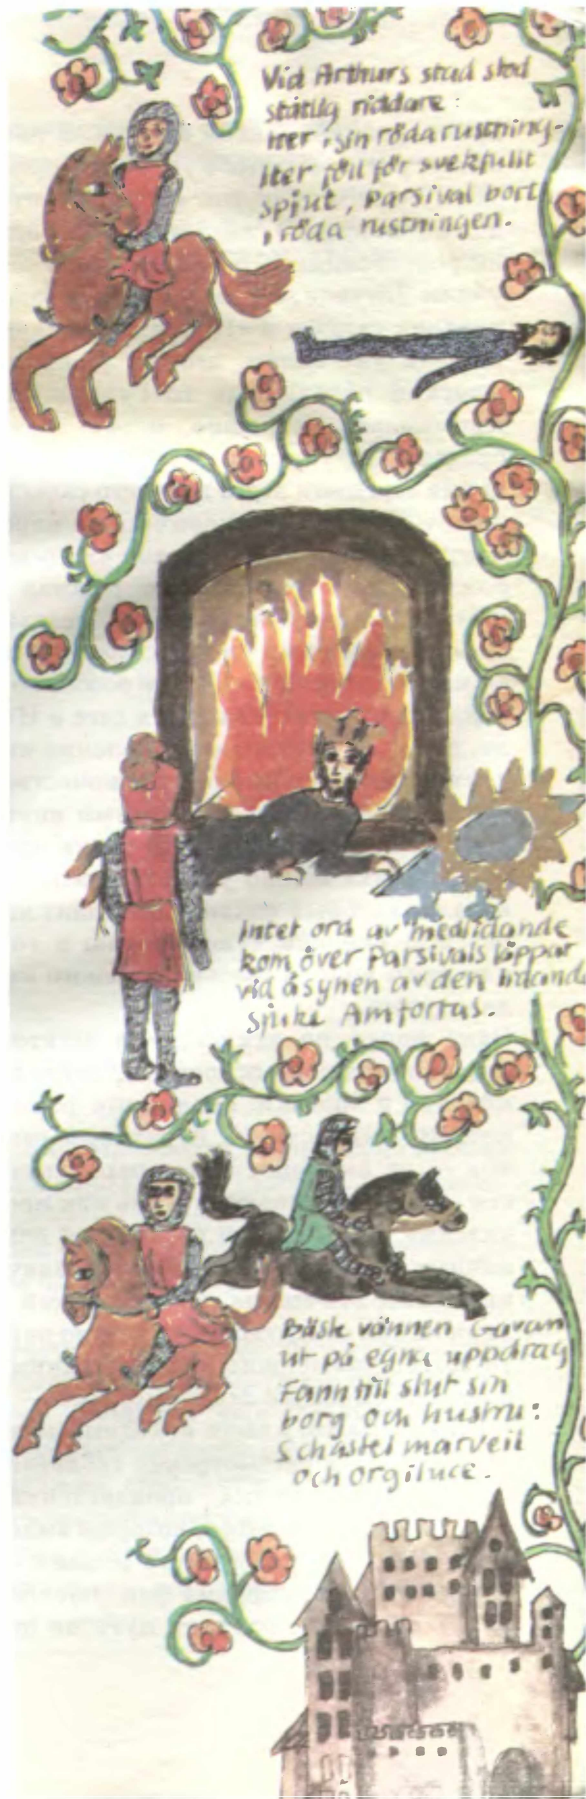 Vid Arthurs stad stod
ståtlig riddare:
Iter i sin röda rustning-
Iter föll för svekfullt
spjut, Parsival bort
i röda rustningen.
Intet ord av medlidande
kom över Parsivals läppar
vid åsynen av den lidande
sjuke Amfortas.
Bäste vännen Gavan
ut på egna uppdrag
Fann till slut sin
borg och hustru:
Schastel marveil
och Orgiluce.